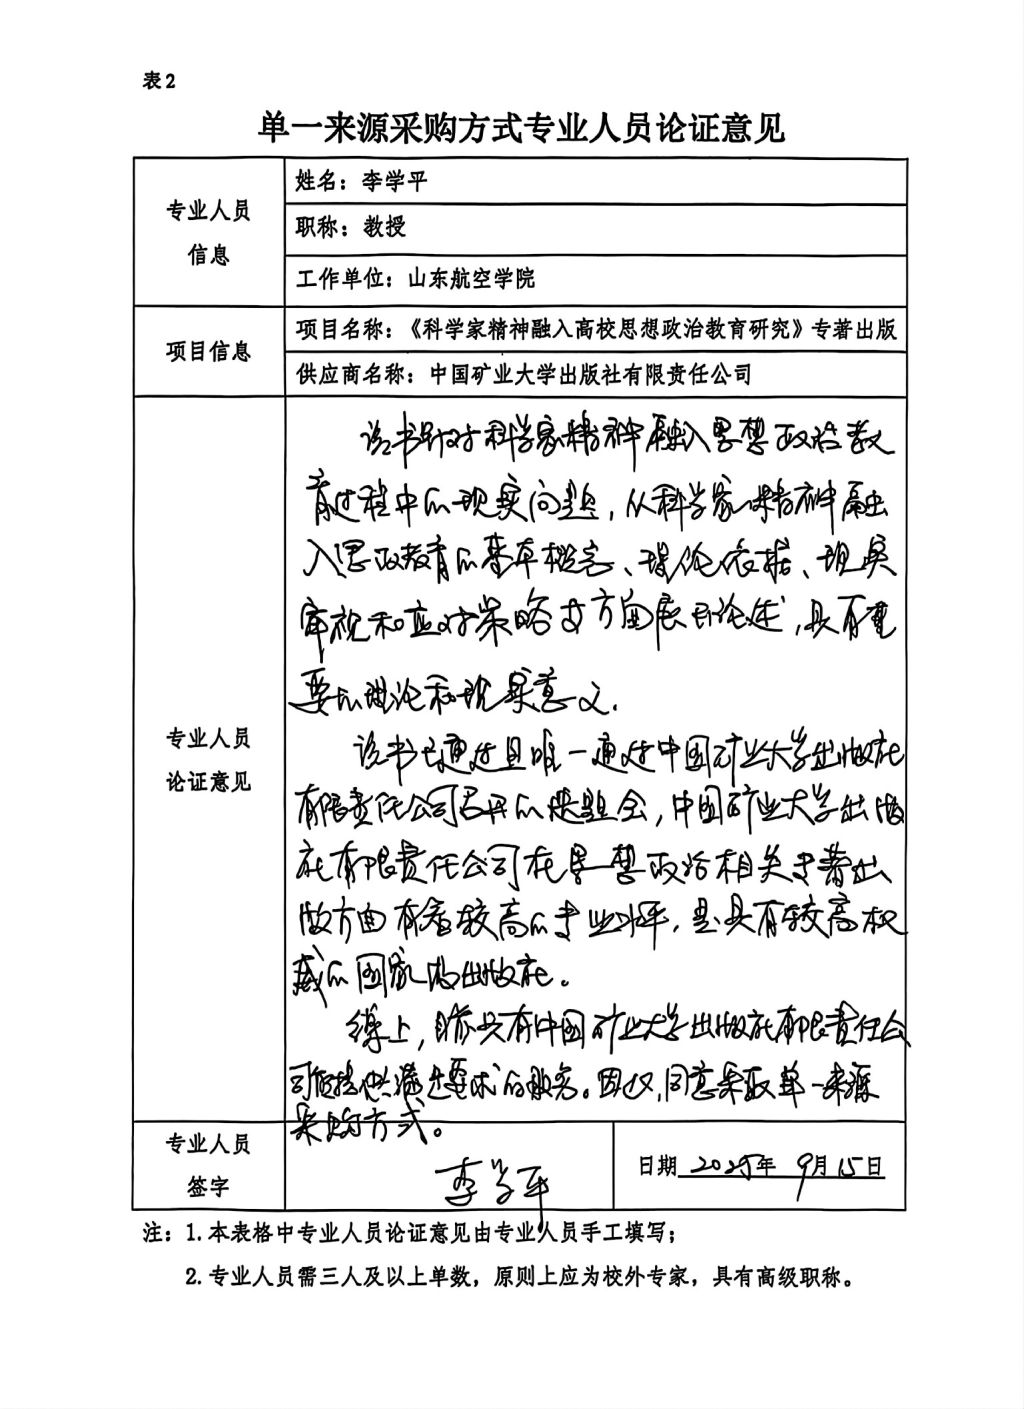 表2
单一来源采购方式专业人员论证意见
专业人员
信息
姓名：李学平
职称：教授
工作单位：山东航空学院
项目信息
项目名称：《科学家精神融入高校思想政治教育研究》专著出版
供应商名称：中国矿业大学出版社有限责任公司
专业人员
论证意见
该书针对科学家精神融入思想政治教
育过程中的现实问题，从科学家精神融
入思政教育的基本概念、理论依据、现实
审视和应对策略等方面展开论述，具有重
要的理论和现实意义.
该书已通过且唯一通过中国矿业大学出版社
有限责任公司召开的选题会，中国矿业大学出版
社有限责任公司在思想政治相关专著出
版方面有着较高的专业水平，是具有较高权
威的国家级出版社。
综上，目前只有中国矿业大学出版社有限责任公
司能提供满足要求的服务。因此，同意采取单一来源
采购方式。
专业人员
签字
李学平
日期 2025年 9月15日
注：1.本表格中专业人员论证意见由专业人员手工填写；
2.专业人员需三人及以上单数，原则上应为校外专家，具有高级职称。